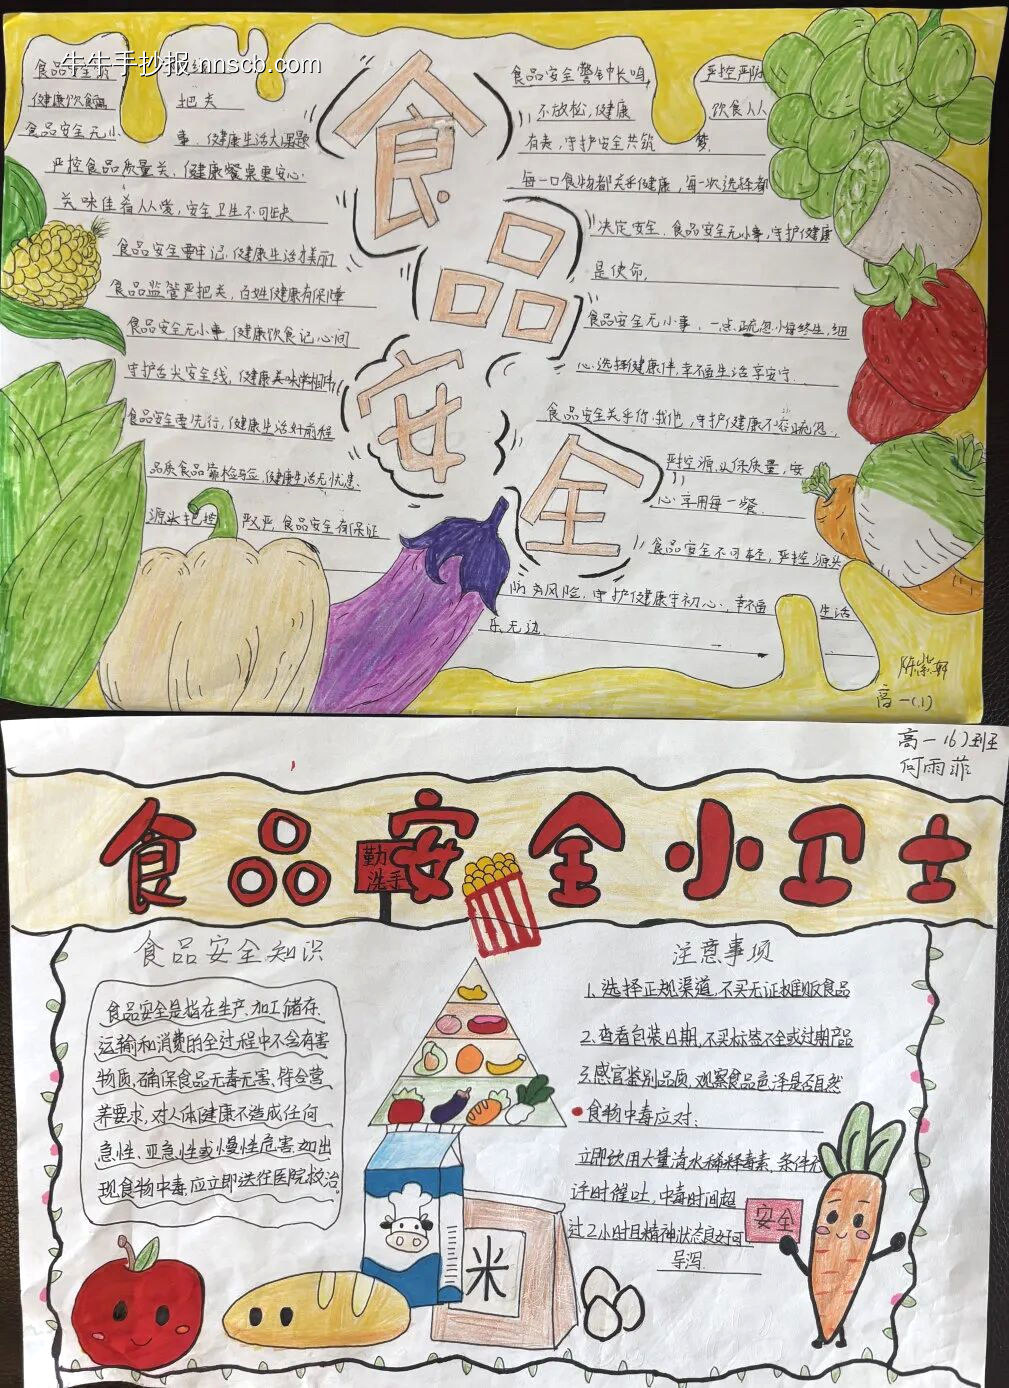 牛牛手抄报.nnscb.com
食品安全
健康饮食
把关
食品安全无小
事，健康生活大课题
严控食品质量关，健康餐桌更安心
美味佳肴人人爱，安全卫生不可缺
食品安全要牢记，健康生活才美丽
食品监管严把关，百姓健康有保障
食品安全无小事，健康饮食记心间
守护舌尖安全线，健康美味常相伴
食品安全要先行，健康生活好前程
品质食品靠检验，健康生活无忧患
源头把控 严又严，食品安全有保证
食品安全
食品安全警钟长鸣，严控严防
不放松，健康 饮食人人
有责，守护安全共筑 梦，
每一口食物都关乎健康，每一次选择都
决定安全，食品安全无小事，守护健康
是使命，
食品安全无小事，一点疏忽小毒终生，细
心选择健康伴，幸福生活享安宁
食品安全关乎你我他，守护健康不容疏忽，
严控源头保质量，安
心享用每一餐
食品安全不可轻，严控源头
防为风险，守护健康守初心，幸福 生活
乐无边
陈紫轩
高一(1)
高一(6)班
何雨菲
食品安全小卫士
勤
洗手
食品安全知识
食品安全是指在生产、加工、储存、
运输和消费的全过程中不含有害
物质，确保食品无毒无害、符合营
养要求，对人体健康不造成任何
急性、亚急性或慢性危害，如出
现食物中毒，应立即送往医院救治。
注意事项
1、选择正规渠道，不买无证摊贩食品
2、查看包装日期，不买标签不全或过期产品
3、感官鉴别品质，观察食品色泽是否自然
食物中毒应对：
立即饮用大量清水稀释毒素，条件允
许时催吐，中毒时间超
过2小时且精神状态良好可
导泻
安全
米